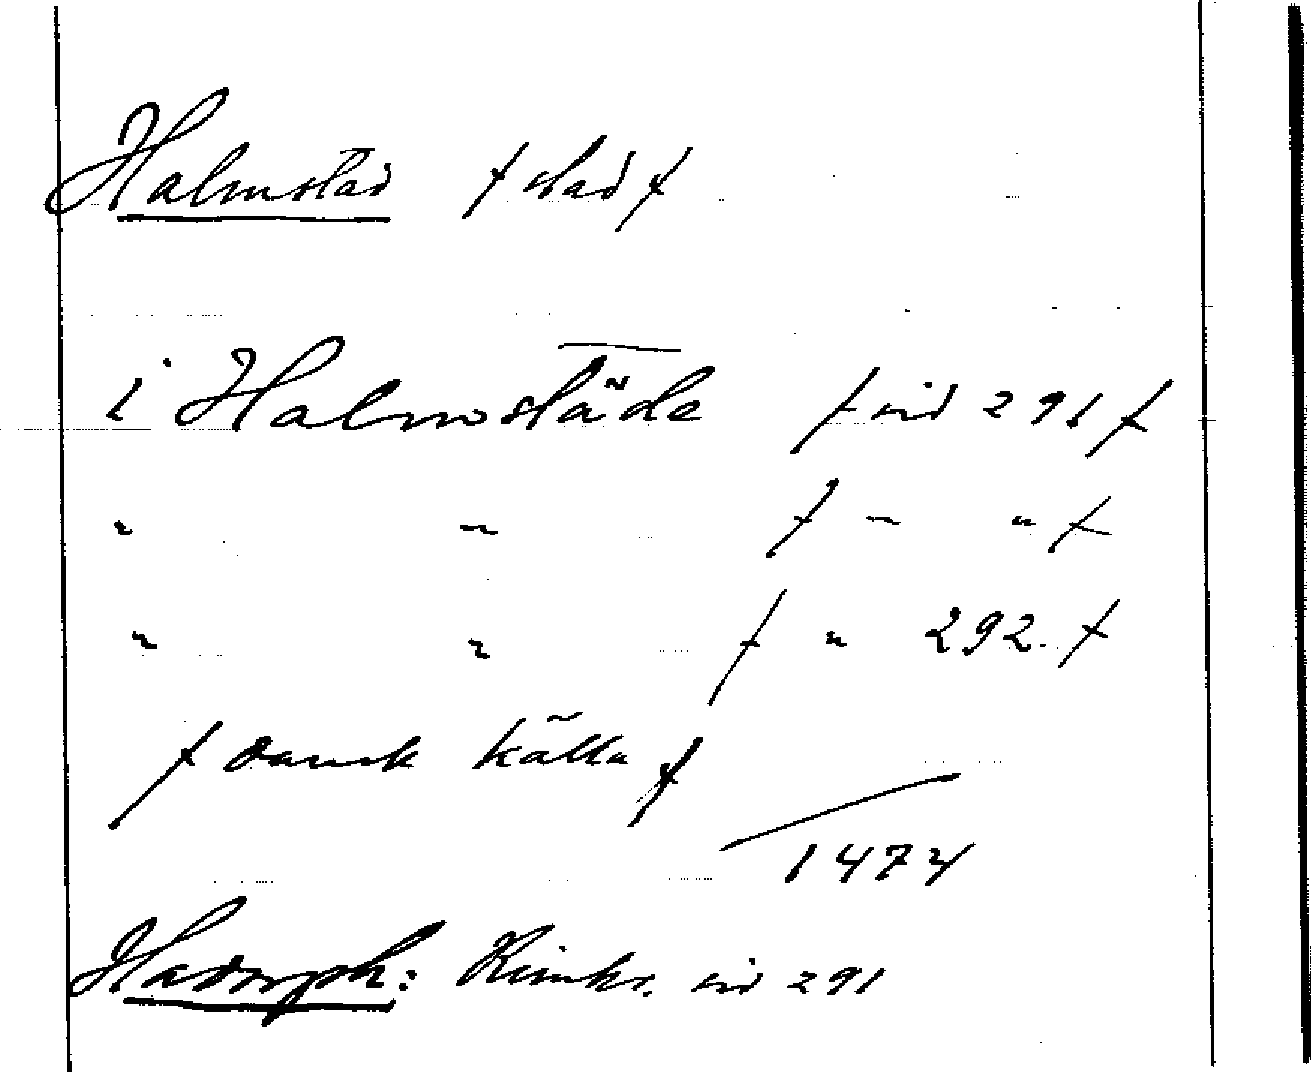 Halmstad / stad /
i Halmstäde / sid 291 /
" " / " " /
" " / " 292. /
/ dansk källa /
1474
Hadorph: Rimkr. sid 291